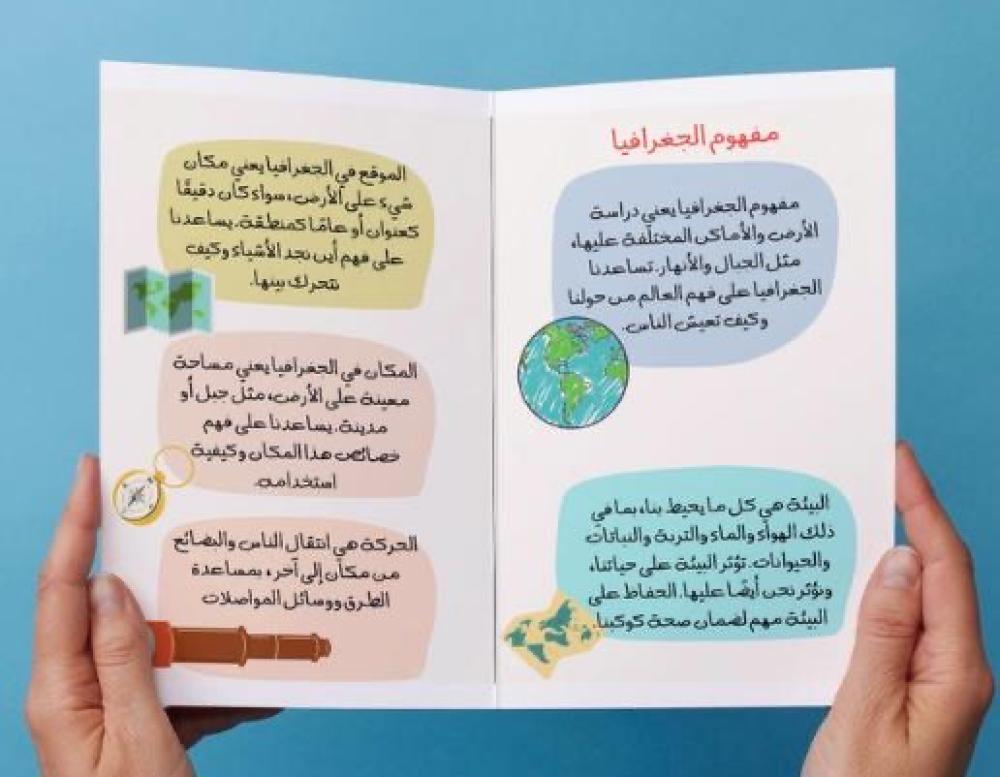 مفهوم الجغرافيا
مفهوم الجغرافيا يعني دراسة
الأرض والأماكن المختلفة عليها،
مثل الجبال والأنهار. تساعدنا
الجغرافيا على فهم العالم من حولنا
وكيف تعيش الناس.
البيئة هي كل ما يحيط بنا، بما في
ذلك الهواء والماء والتربة والنباتات
والحيوانات. تؤثر البيئة على حياتنا،
ونؤثر نحن أيضًا عليها. الحفاظ على
البيئة مهم لضمان صحة كوكبنا.
الموقع في الجغرافيا يعني مكان
شيء على الأرض، سواء كان دقيقًا
كعنوان أو عامًا كمنطقة. يساعدنا
على فهم أين نجد الأشياء وكيف
نتحرك بينها.
المكان في الجغرافيا يعني مساحة
معينة على الأرض، مثل جبل أو
مدينة. يساعدنا على فهم
خصائص هذا المكان وكيفية
استخدامه.
الحركة هي انتقال الناس والبضائع
من مكان إلى آخر، بمساعدة
الطرق ووسائل المواصلات